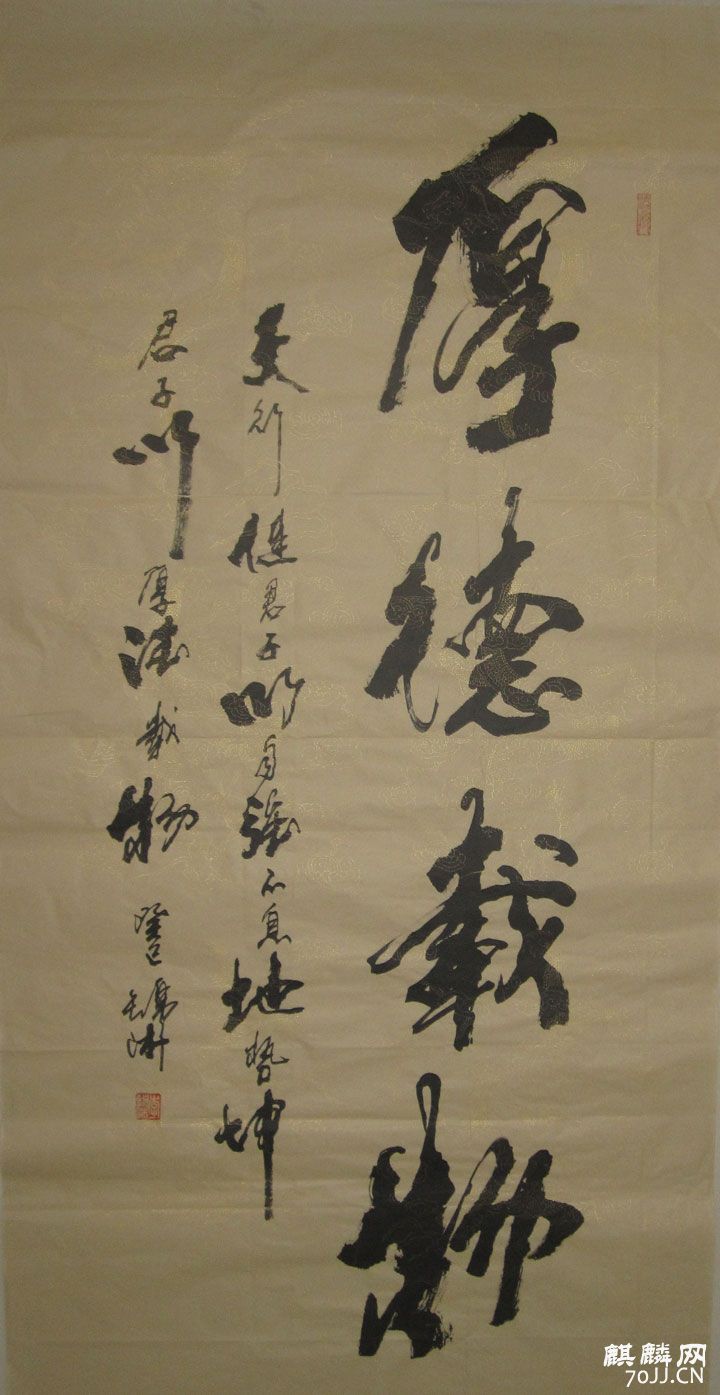 厚德載物
天行健君子以自強不息地勢坤
君子以厚德載物 癸巳
麒麟网
70JJ.CN